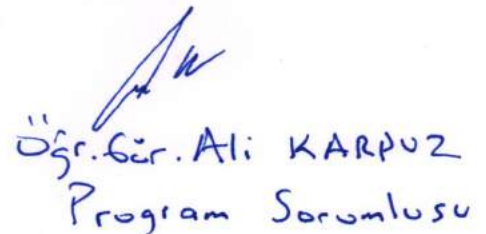 Öğr. Gör. Ali KARPUZ
Program Sorumlusu